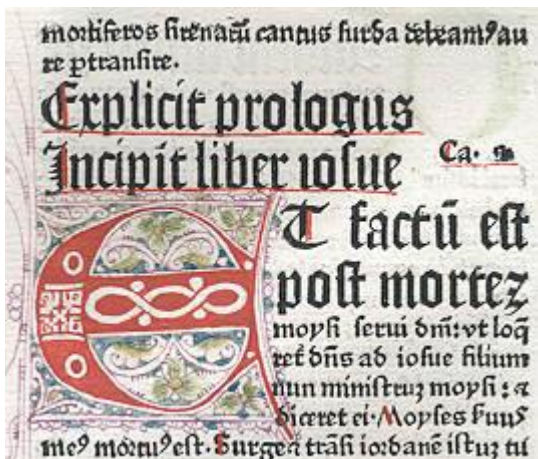 mortiferos sirenaꝝ cantus surda debeamꝰ au
re ꝑtransire.
Explicit prologus
Incipit liber iosue
Ca.
ET factū est
post mortez
moysi serui dn̄i: vt loq̄
ret dn̄s ad iosue filium
nun ministruꝫ moysi: ⁊
diceret ei. Moyses ẜuus
meꝰ mortuꝰ est. Surge ⁊ trāsi iordanē istuꝫ tu